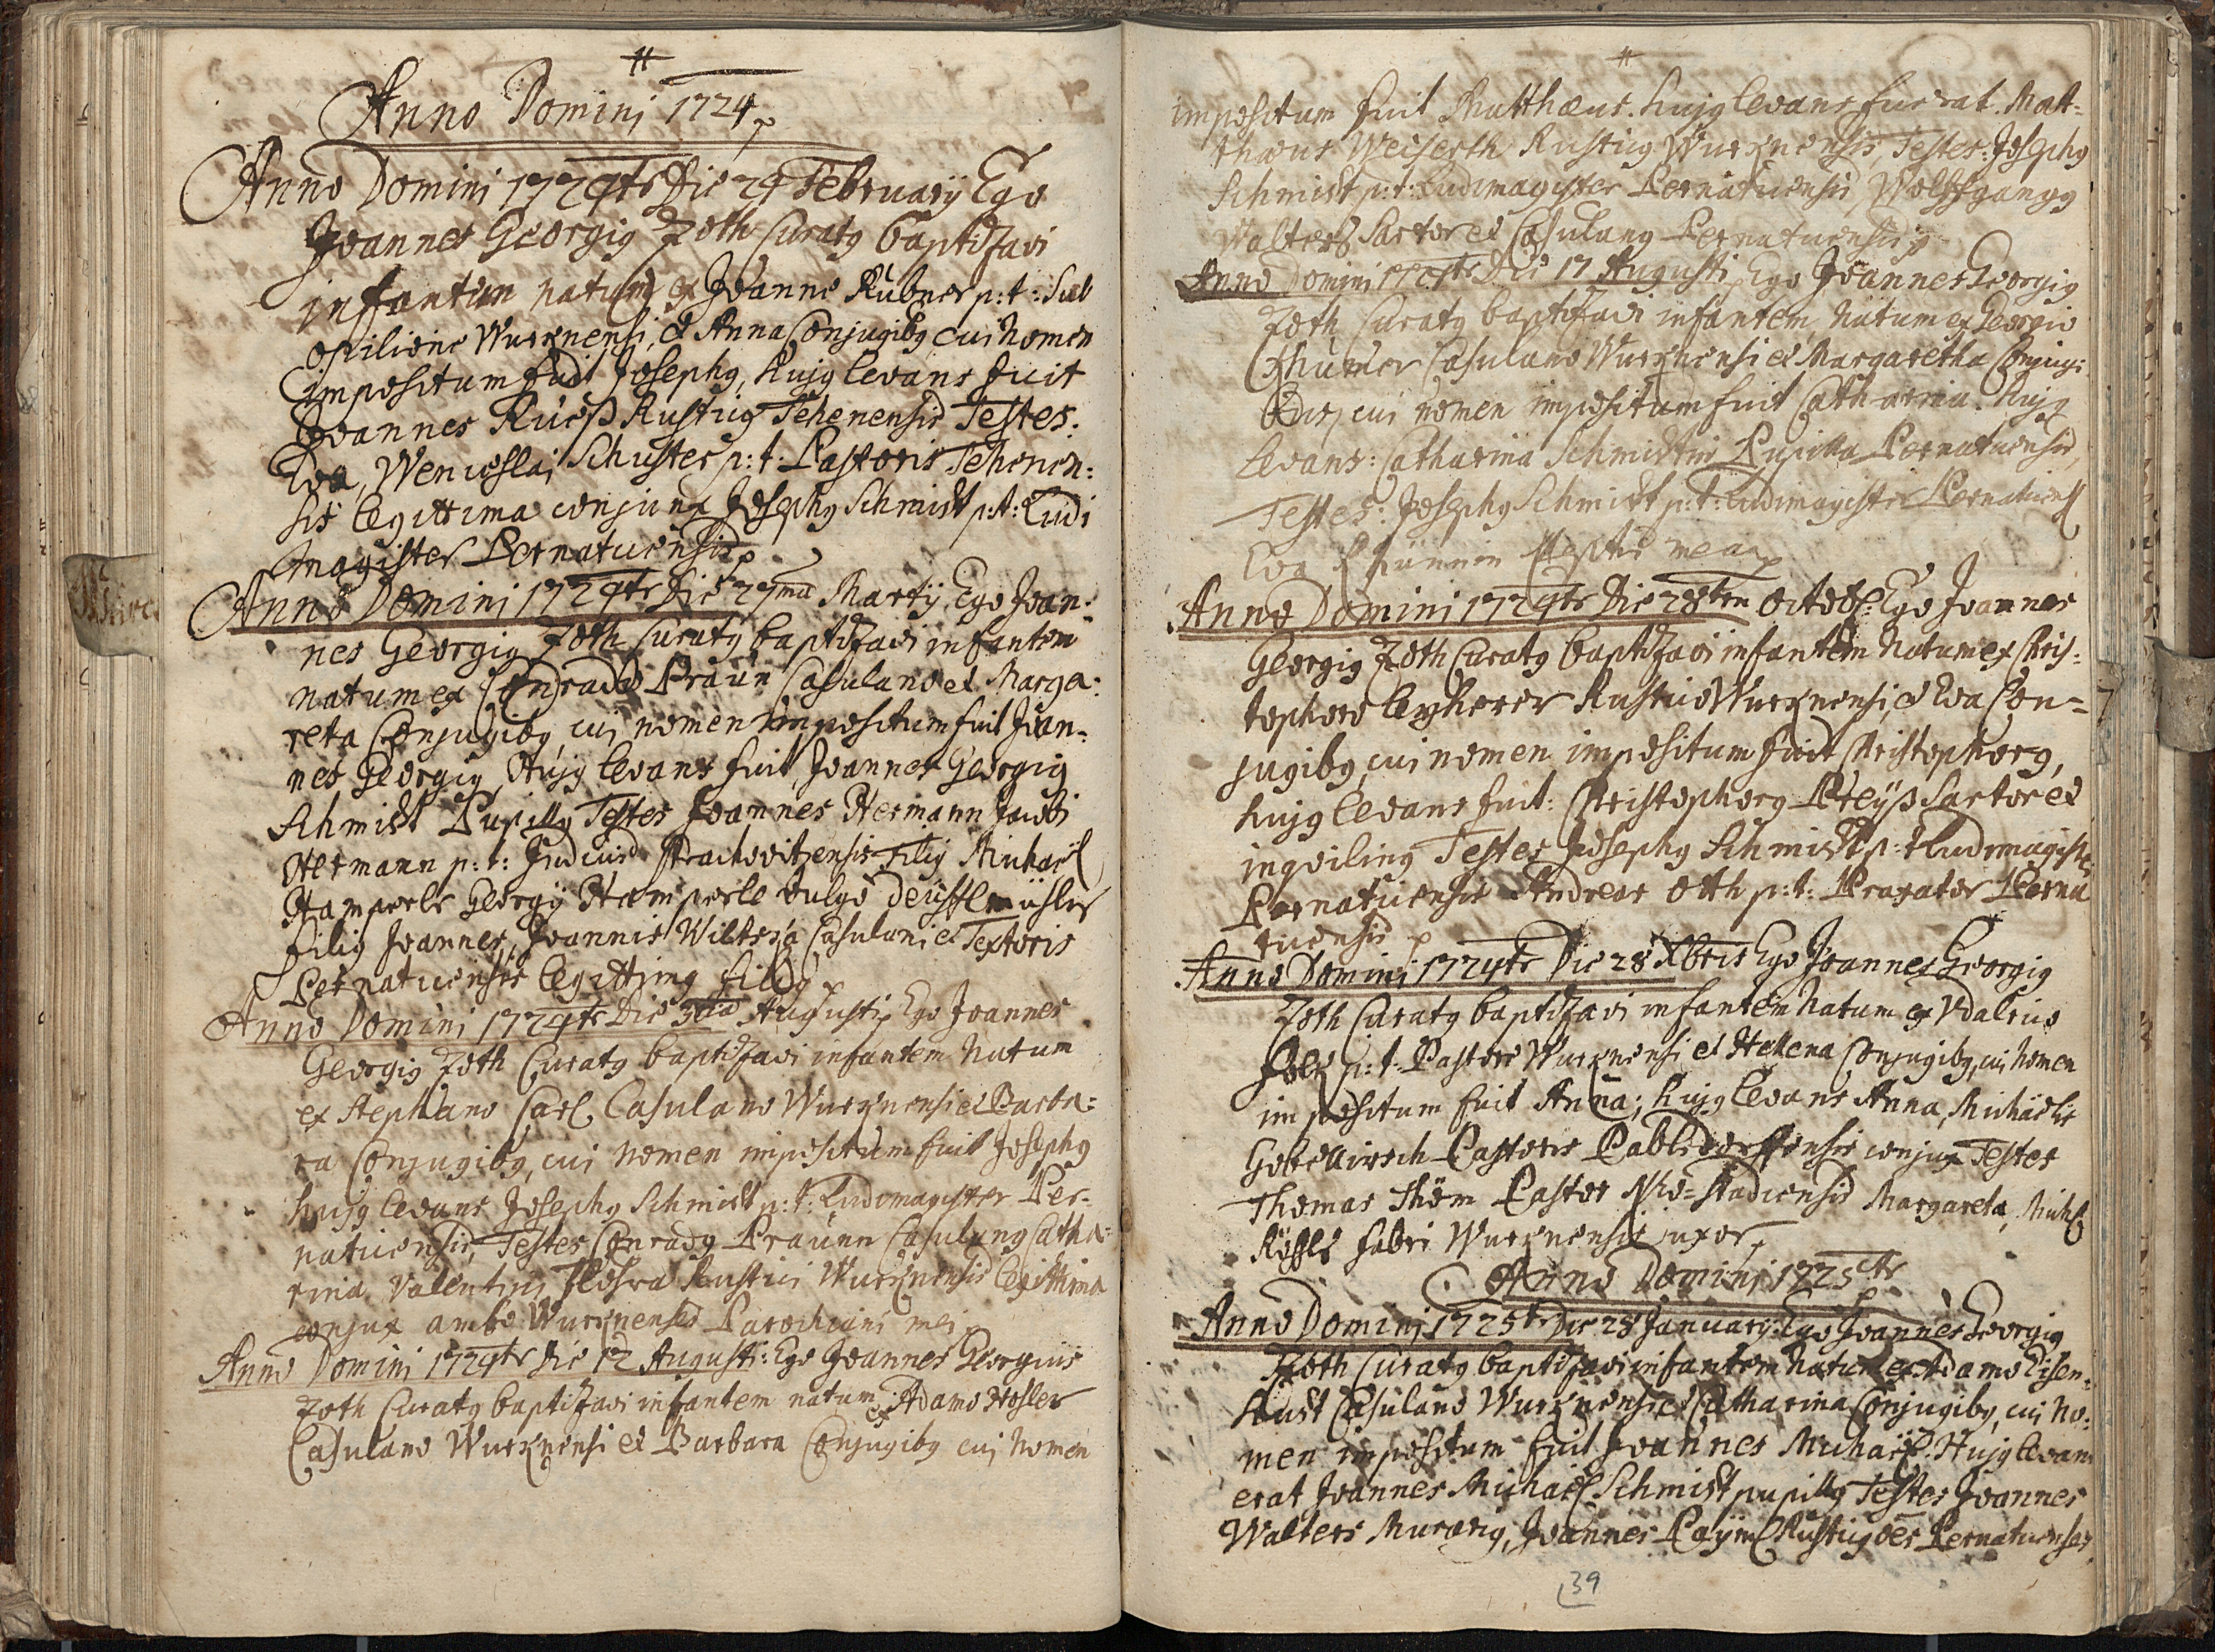 #
Anno Domini 1724
Anno Domini 1724to Die 24 February Ego
Joannes Georgig Zoth Curatg baptizavi
infantem natum ex Joanne Rübner p: t: Sub
opilione Wurznensi, et Anna Conjugibg cui nomen
impositum fuit Josephg, hujg levans fuit
Joannes Rüeß Rusticg Tehenensis Testes:
Eva, Wenceslai Schuster p: t: Pastoris Tehenen:
sis legittima conjunx Josephg Schmidt p: t: Ludi
magister Pernaticensis
Anno Domini 1724to Die 27ma Martij Ego Joan:
nes Georgig Zoth Curatg baptizavi infantem
natum ex Conrado Praun Casulano et Marga:
reta Conjugibg, cui nomen impositum fuit Joan:
nes Georgig, Hujg levans fuit Joannes Georgig
Schmidt Pupillg Testes Joannes Hermann Jacobi
Hermann p: t: Judicis Strachovitzensis Filig Michaël
Hamperle Georgij Hamperle vulgo
filig Joannes, Joannis Wilts Casulani et Textoris
Pernaticensis legittimg filig
Anno Domini 1724to Die 3tia Augusti Ego Joannes
Georgig Zoth Curatg baptizavi infantem Natum
ex Stephano Carl Casulano Wurznensi et Barba:
ra Conjugibg, cui nomen impositum fuit Josephg
hujg levans Josephg Schmidt p: t: Ludimagister Per-
naticensis, Testes Conradg Praunn Casulang Catha:
rina Valentini Rustici Wurznensis legittima
conjux ambo Wurznenses Parochiani mei
Anno Domini 1724to Die 12 Augusti: Ego Joannes Georgius
Zoth Curatg baptizavi infantem natum ex Adamo Hosler
Casulano Wurznensi et Barbara Conjugibg cui Nomen
#
impositum fuit Matthæus. hujg levans fuerat. Mat-
thæus Weiserth Rusticg Wurznensis, Testes: Josephg
Schmidt p: t: Ludimagister Pernaticensis, Wolffgangg
Walters Sartor et Casulang Pernaticensis
Anno Domini 1724to Die 17 Augusti Ego Joannes Georgig
Zoth Curatg baptizavi infantem, Natum ex Georgio
Casulano Wurznensi et Margaretha Conjugi:
bus, cui nomen impositum fuit Catharina. hujg
levans: Catharina Schmidtin Pupilla Pernaticensis,
Testes: Josephg Schmidt p: t: Ludimagister Pernaticens
Eva mea
Anno Domini 1724to Die 28ten Octob: Ego Joannes
Georgig Zoth Curatg baptizavi infantem Natum ex Chris:
tophoro Leyherer Rustico Wurznensi, et Eva Con=
jugibg, cui nomen impositum fuit Christophorg,
hujg levans fuit: Christophorg Preyß Sartor et
inqviling Testes Josephg Schmidt p: t Ludimagiste
Pernaticensis Andreas Otth p: t: Braxator Perna
ticensis
Anno Domini 1724to Die 28 Xbris Ego Joannes Georgig
Zoth Curatg baptizavi infantem Natum ex Vdalrico
p: t: Pastore Wurznensi et Hellena Conjugibg, cui Nomen
impositum fuit Anna; hujg levans Anna, Michaëlis
Gobellirsch Pastoris Pablsdorffensis conjux Testes
Thomas Thöm Pastor Neo-stadiensis Margareta, Mich
Rößl fabri Wurznensis uxor
Anno Domini 1725to
Anno Domini 1725to Die 28 January: Ego Joannes Georgig
Zoth Curatg baptizavi infantem Natum ex Adamo Eisen-
hudt Casulano Wurznensi et Catharina Conjugibg, cui No:
men impositum fuit Joannes Michaël. Hujg levans
erat Joannes Michaël Schmidt pupillg Testes Joannes
Walters Murarig, Joannes Paÿml Rusticg oes Pernaticenses
39